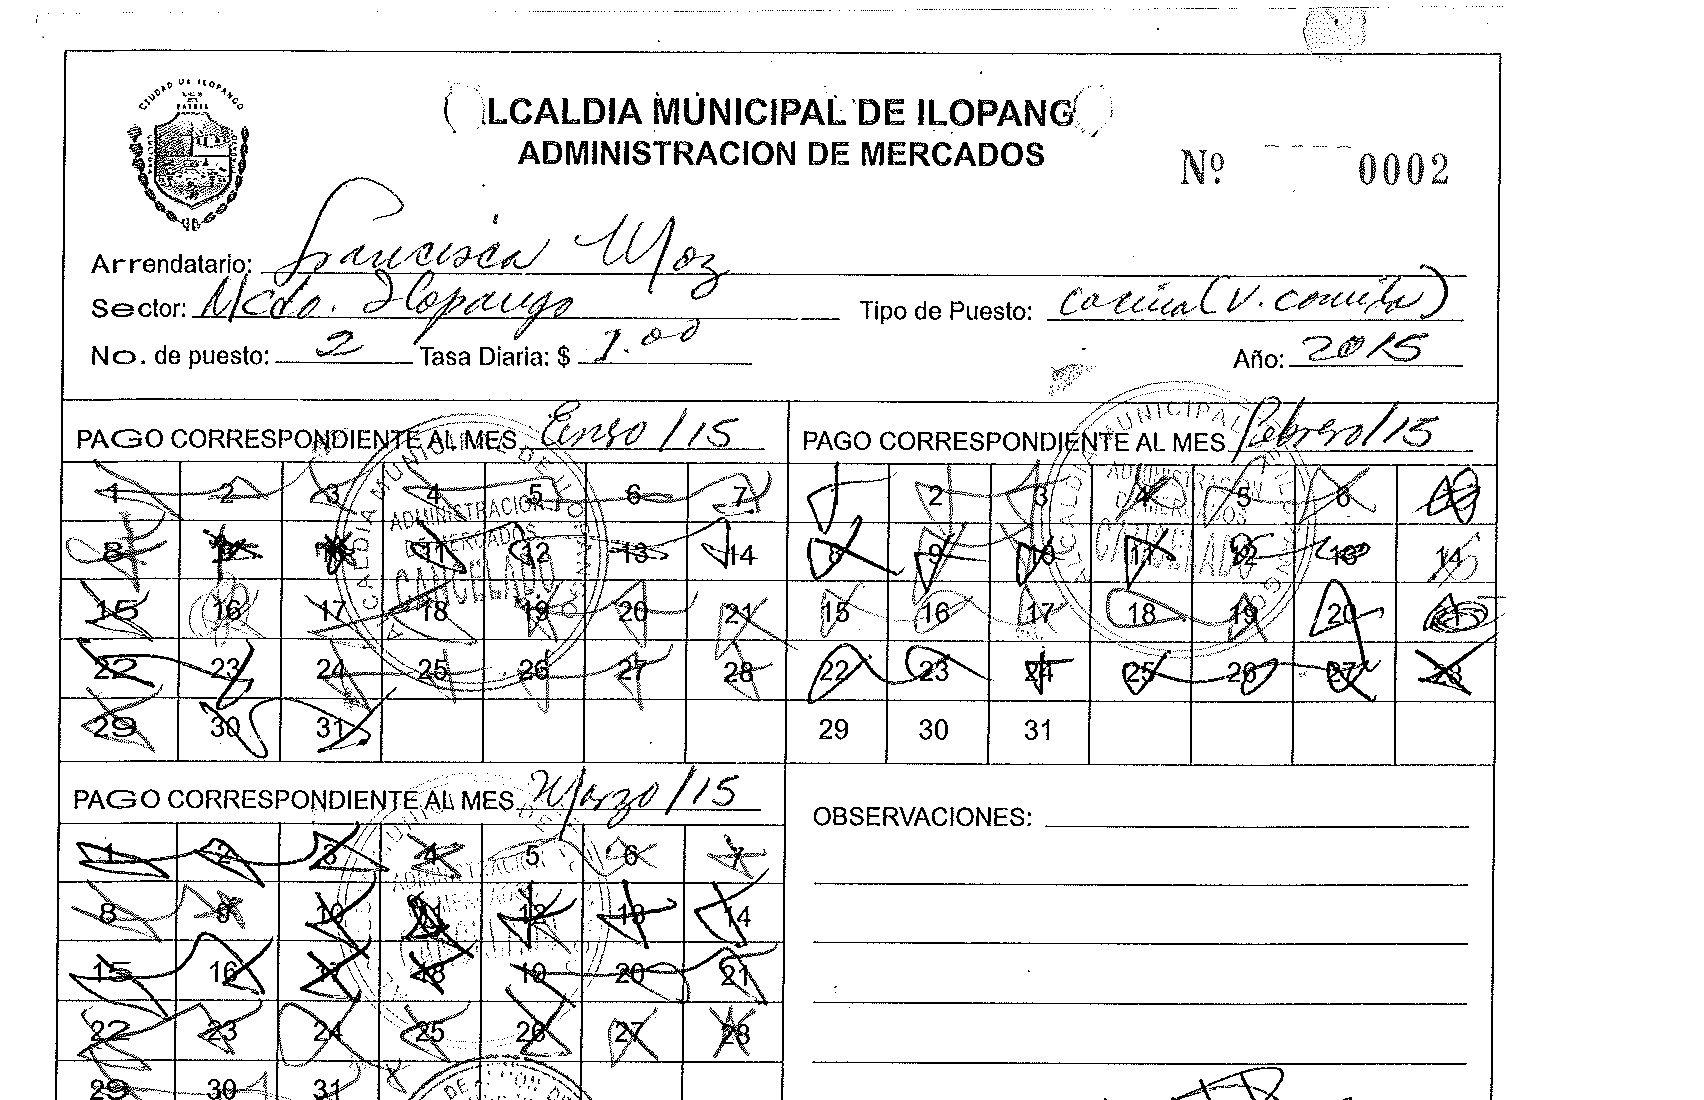 CIUDAD DE ILOPANGO
PATRIA
LCALDIA MUNICIPAL DE ILOPANG
ADMINISTRACION DE MERCADOS
Nº 0002
Arrendatario: Francisca Moz
Sector: Mcdo. Ilopango Tipo de Puesto: cocina (V. comida)
No. de puesto: 2 Tasa Diaria: $ 1.00 Año: 2015
PAGO CORRESPONDIENTE AL MES Enero/15
1 2 3 4 5 6 7
8 9 10 11 12 13 14
15 16 17 18 19 20 21
22 23 24 25 26 27 28
29 30 31
ADMINISTRACION
DE MERCADOS
CANCELADO
PAGO CORRESPONDIENTE AL MES Febrero/15
1 2 3 4 5 6 7
8 9 10 11 12 13 14
15 16 17 18 19 20 21
22 23 24 25 26 27 28
29 30 31
ADMINISTRACION
DE MERCADOS
CANCELADO
PAGO CORRESPONDIENTE AL MES Marzo/15
1 2 3 4 5 6 7
8 9 10 11 12 13 14
15 16 17 18 19 20 21
22 23 24 25 26 27 28
29 30 31
OBSERVACIONES: